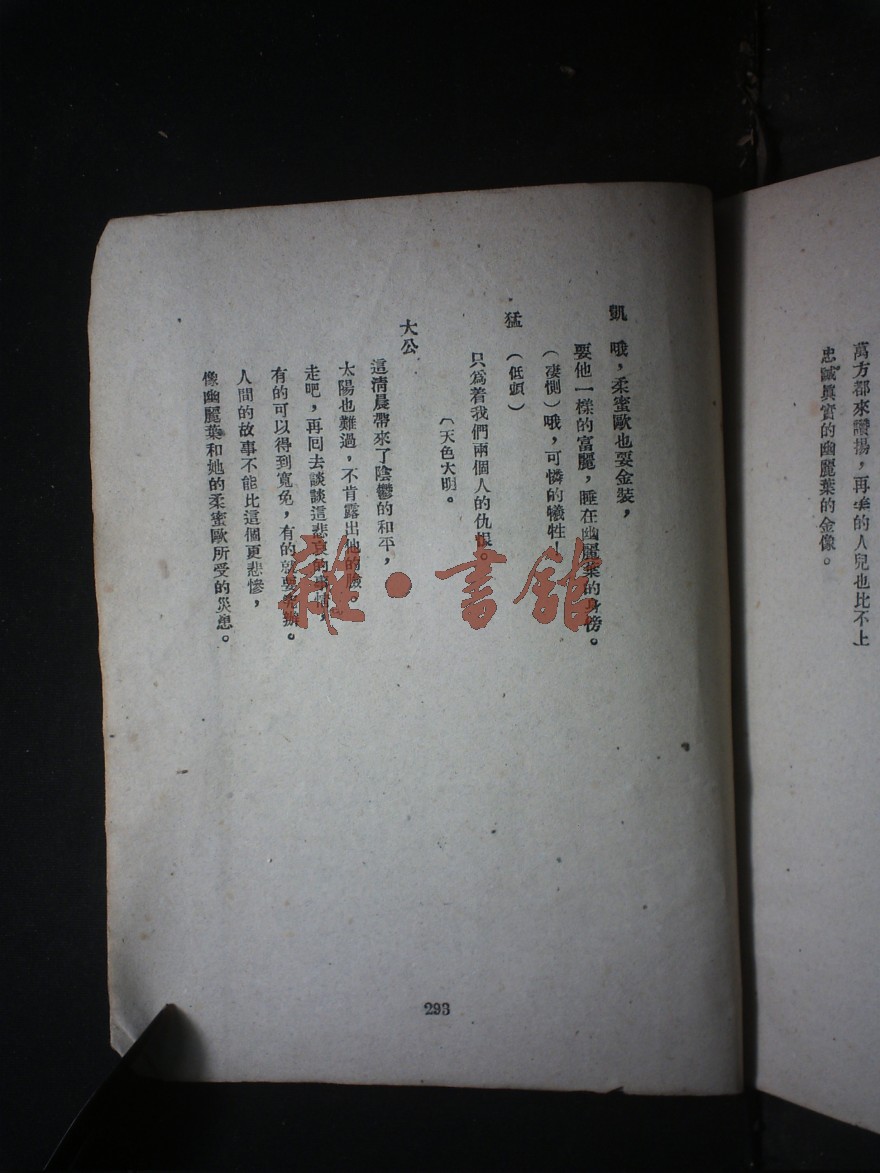 萬方都來讚揚，再
的人兒也比不上
忠誠眞實的幽麗葉的金像。
凱　哦，柔蜜歐也要金裝，
要他一樣的富麗，睡在幽麗葉的身傍。
（凄惻）哦，可憐的犧牲！
猛　（低頭）
只爲着我們兩個人的仇恨。
（天色大明。
大公
這清晨帶來了陰鬱的和平，
太陽也難過，不肯露出他的臉。
走吧，再回去談談這悲哀的事情，
有的可以得到寬免，有的就要
人間的故事不能比這個更悲慘，
像幽麗葉和她的柔蜜歐所受的災患。
雜·書館
293